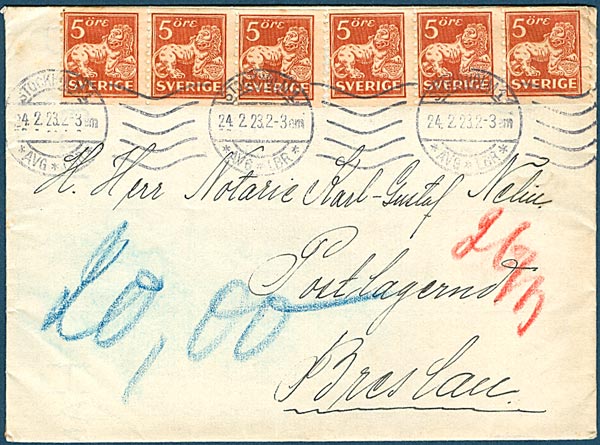 5 ÖRE 5 ÖRE 5 ÖRE 5 ÖRE 5 ÖRE 5 ÖRE
SVERIGE SVERIGE SVERIGE SVERIGE SVERIGE SVERIGE
24.2.23.2-3 em 24.2.23.2-3 em 24.2.23.2-3 em
* AVG * LBR * * AVG * LBR * * AVG * LBR *
H. Herr Notarie Karl-Gustaf Nelin.
Postlagernd
20,00
Breslau.